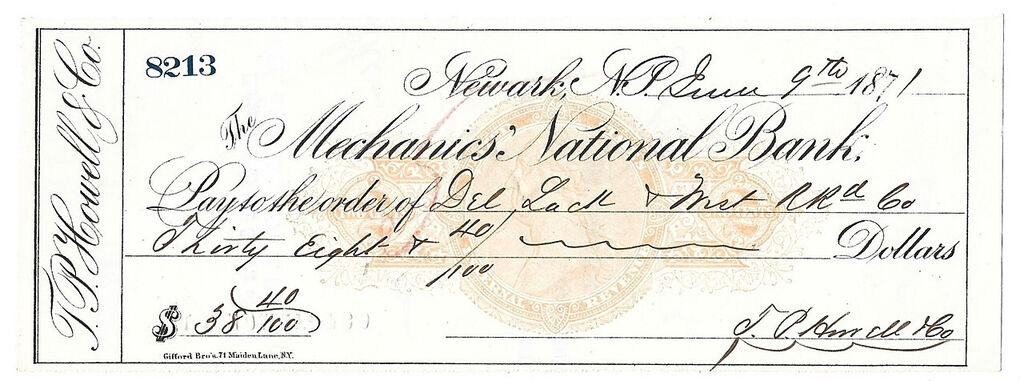 T.P. Howell & Co.
8213
Newark, N.J. June 9th 1871
The Mechanics' National Bank,
Pay to the order of Del Lack & West RRd Co
Thirty Eight & 40/100 Dollars
$ 38 40/100
T. P. Howell & Co
Gifford Bro's. 71 Maiden Lane, N.Y.